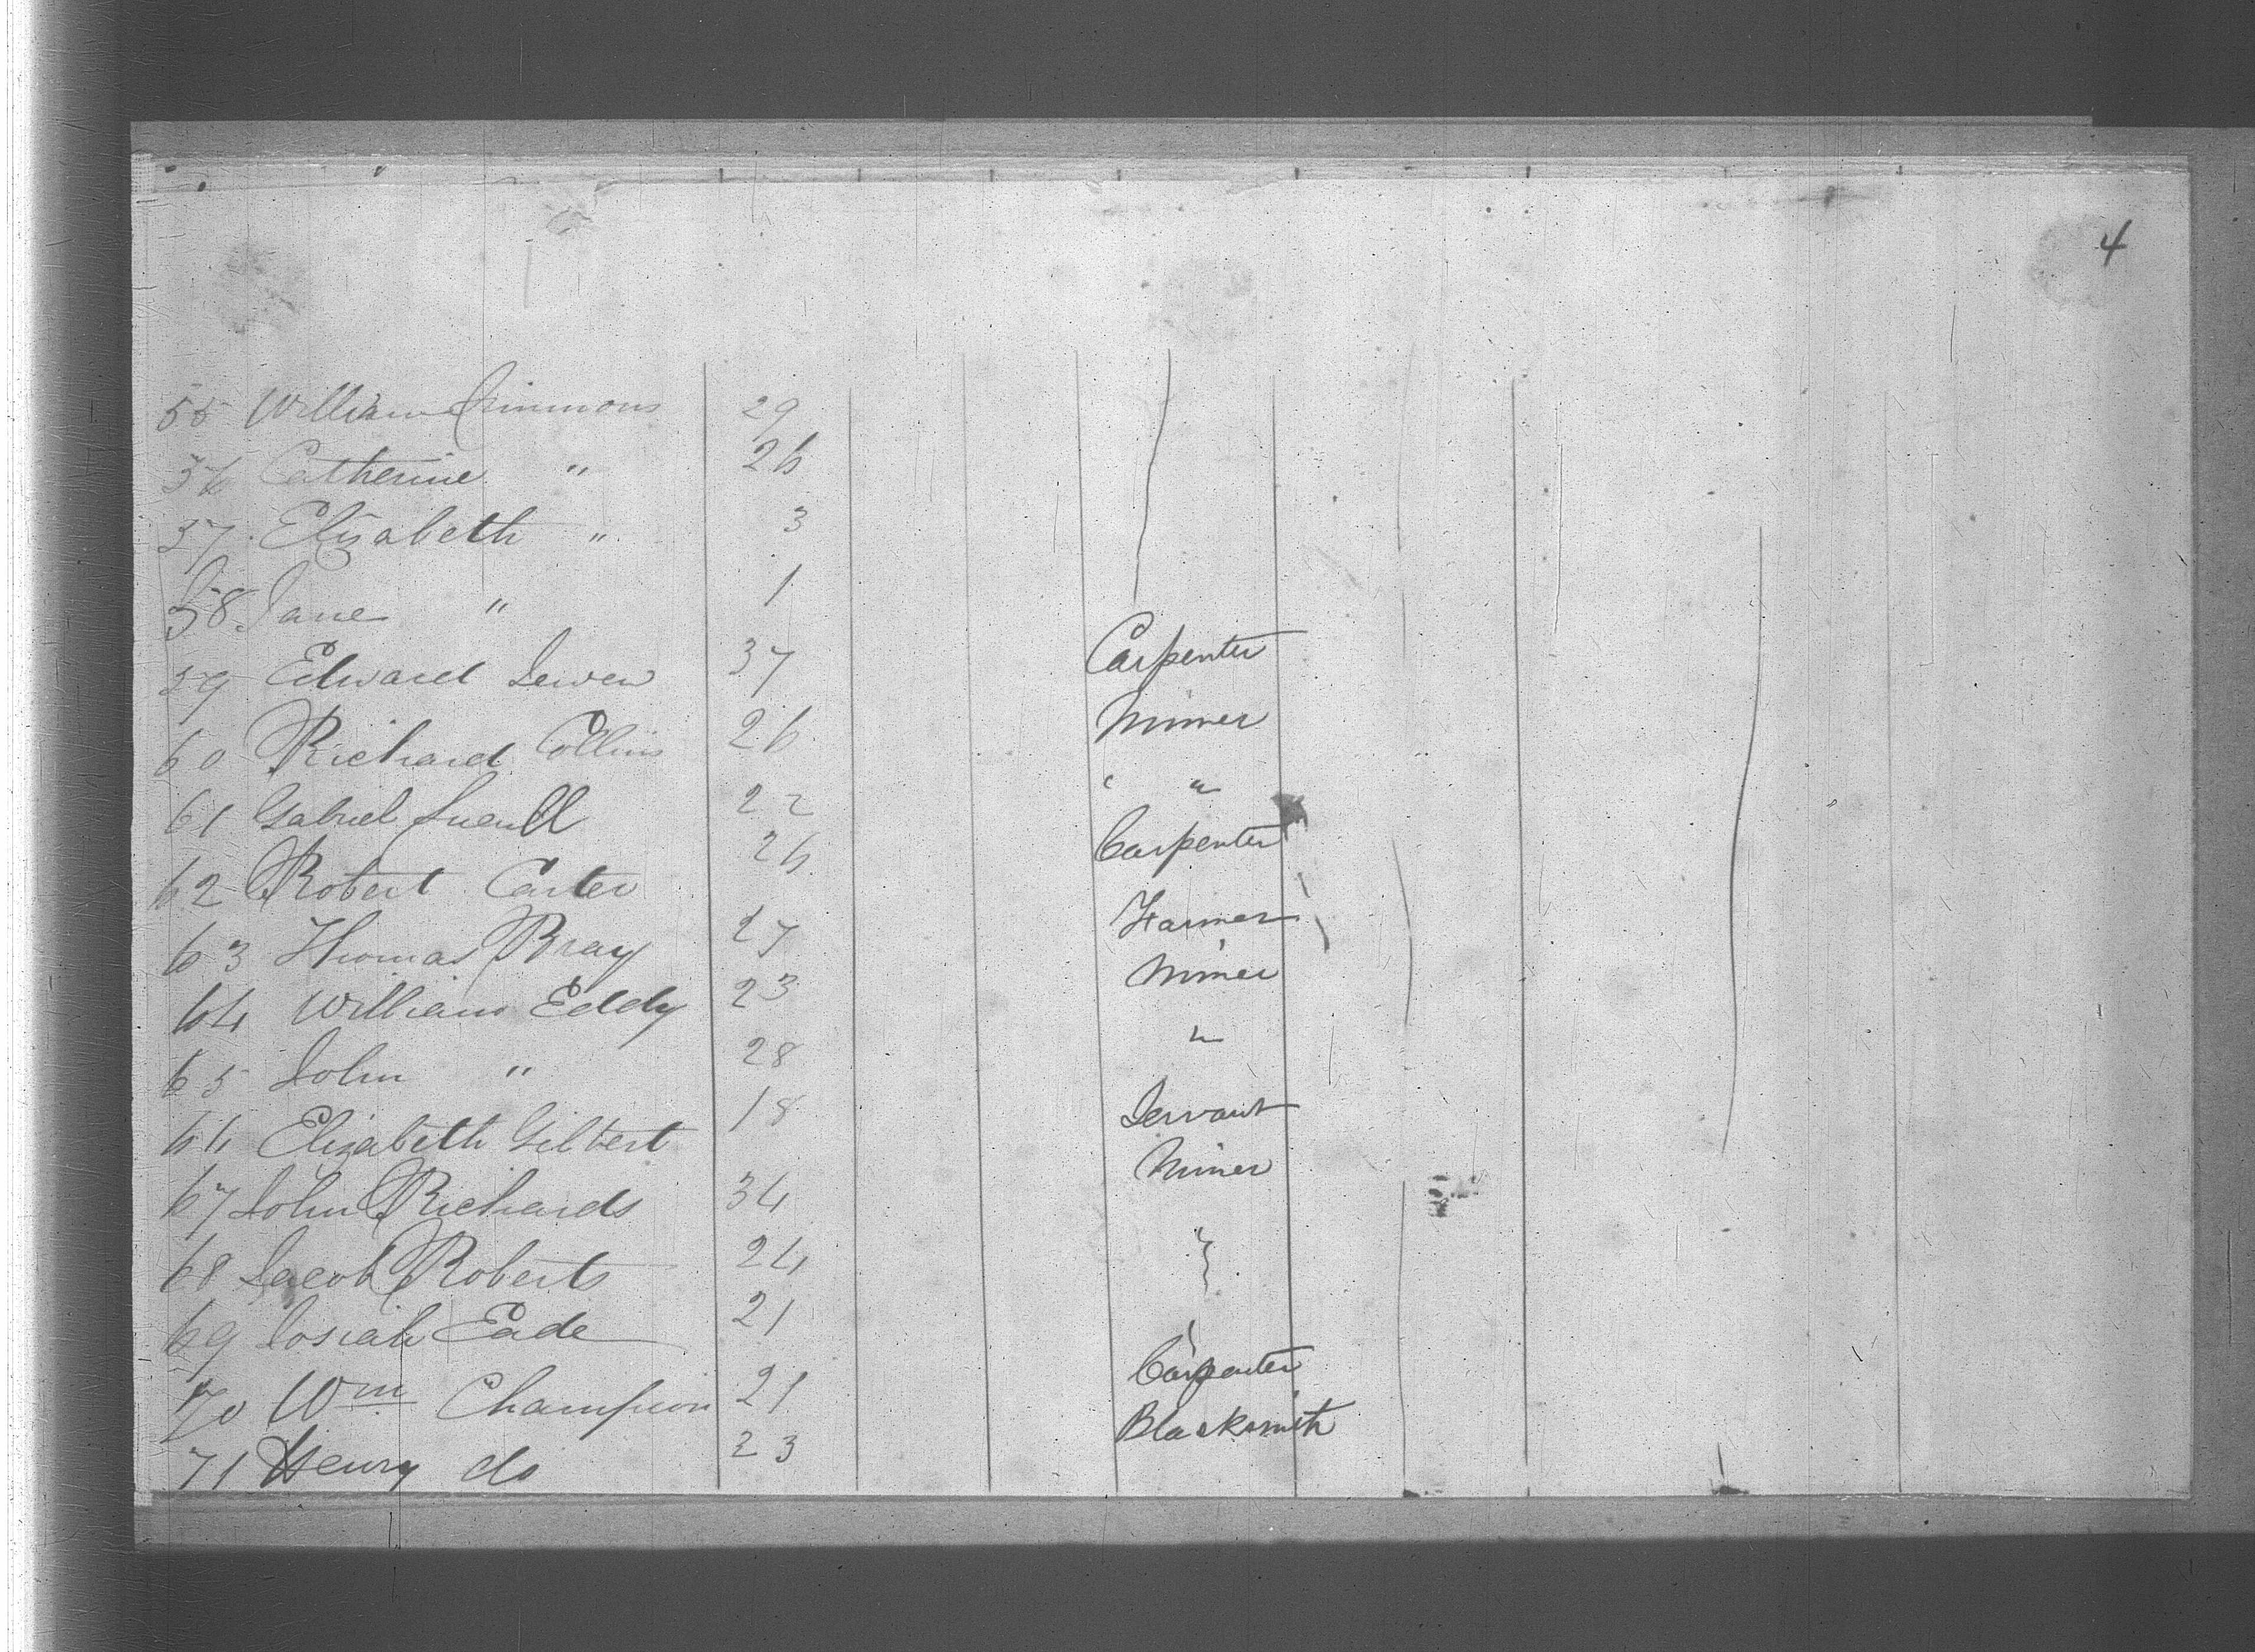 4
55 William Simmons 29
56 Catherine " 26
57 Elizabeth " 3
58 Jane " 1
59 Edward 37 Carpenter
60 Richard Collins 26 Miner
61 Gabriel 22 " "
62 Robert Carter 26 Carpenter
63 Thomas Bray 27 Farmer
64 William Eddy 23 Miner
65 John " 28 "
66 Elizabeth Gilbert 18 Servant
67 John Richards 34 Miner
68 Jacob Roberts 24
69 Josiah Eade 21
70 Wm Champion 21 Carpenter
71 Henry do 23 Blacksmith